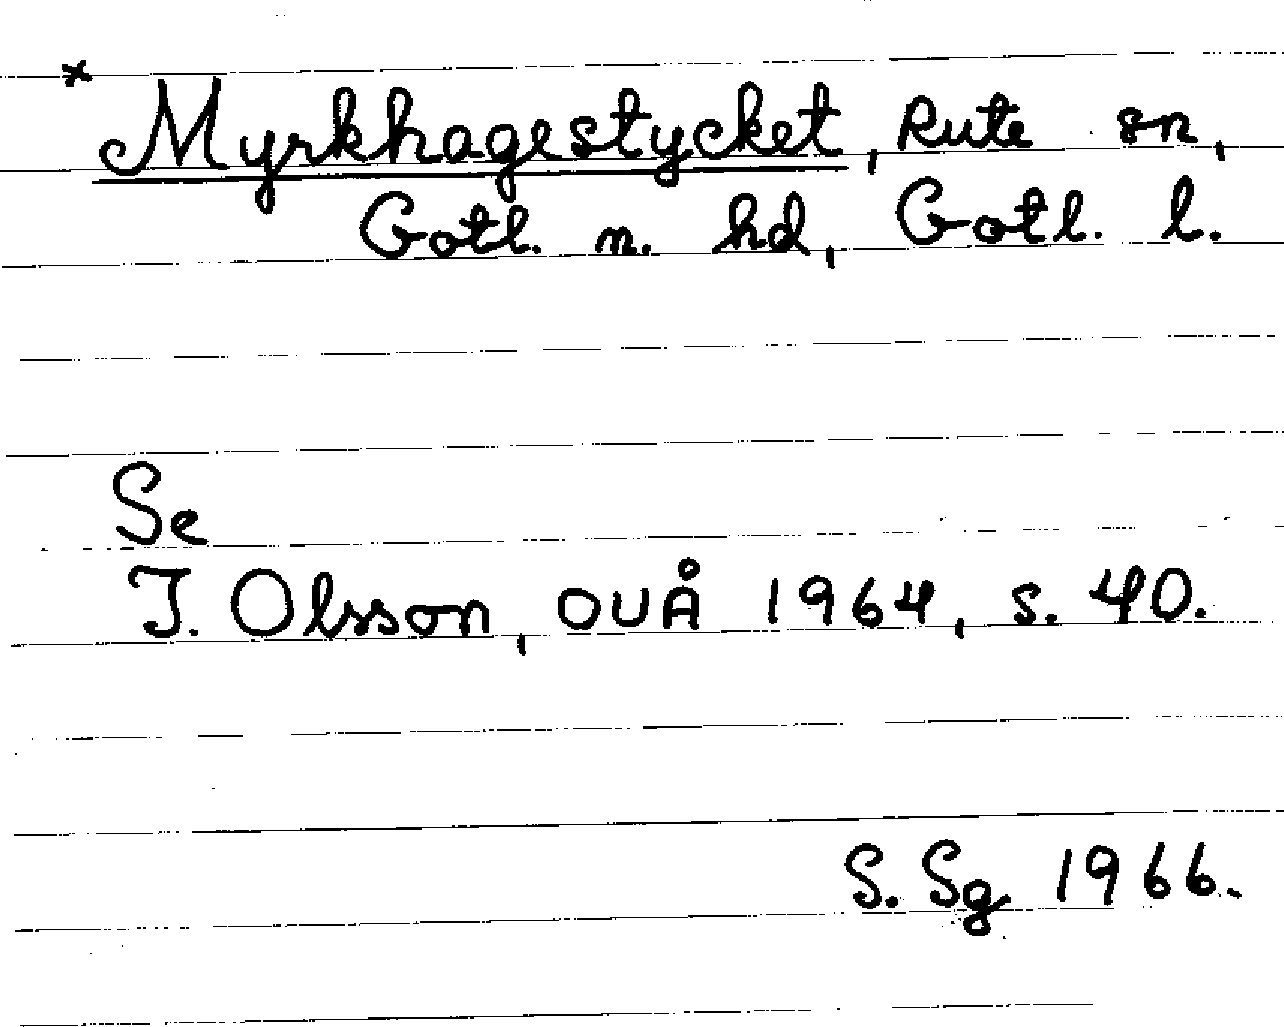 × Myrkhagestycket, Rute sn,
Gotl. n. hd, Gotl. l.
Se
I. Olsson, OUÅ 1964, s. 40.
S. Sg 1966.